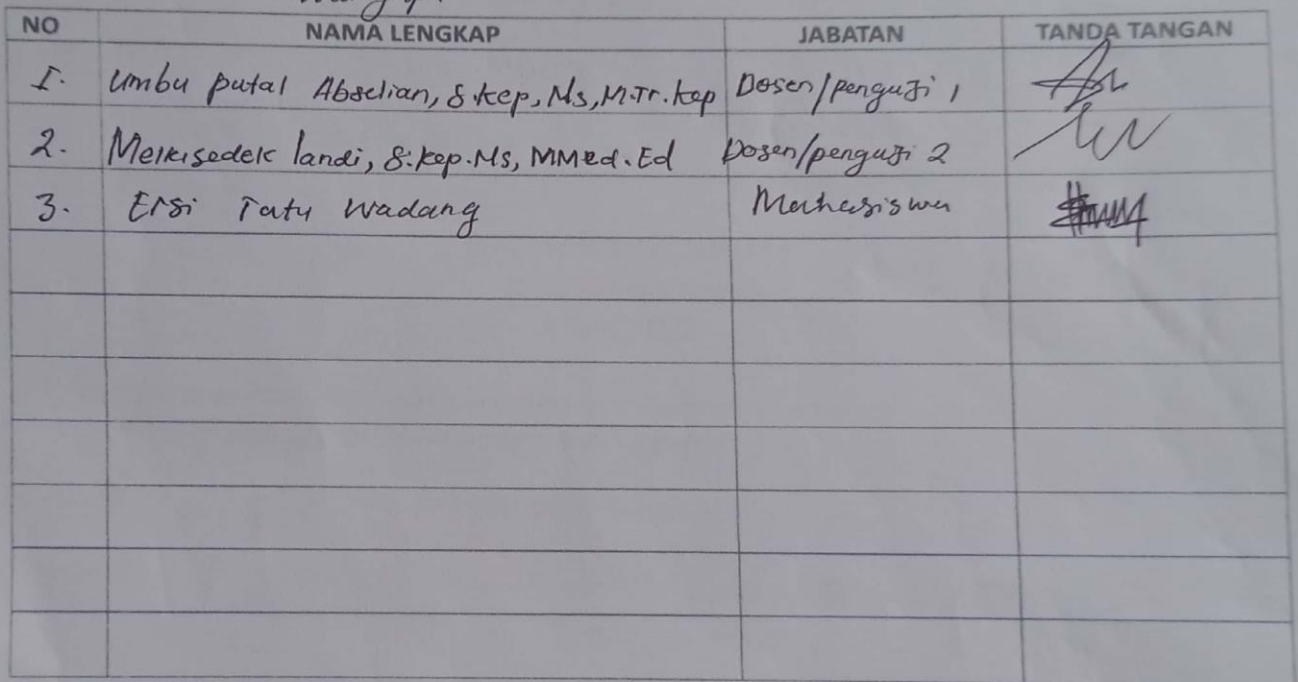 NO NAMA LENGKAP JABATAN TANDA TANGAN
1. Umbu putal Abselian, S.kep, Ns, M.Tr.kep Dosen/penguji 1
2. Melkisedek landi, S.kep.Ns, MMed.Ed Dosen/penguji 2
3. Ersi Tatu Wadang Mahasiswa